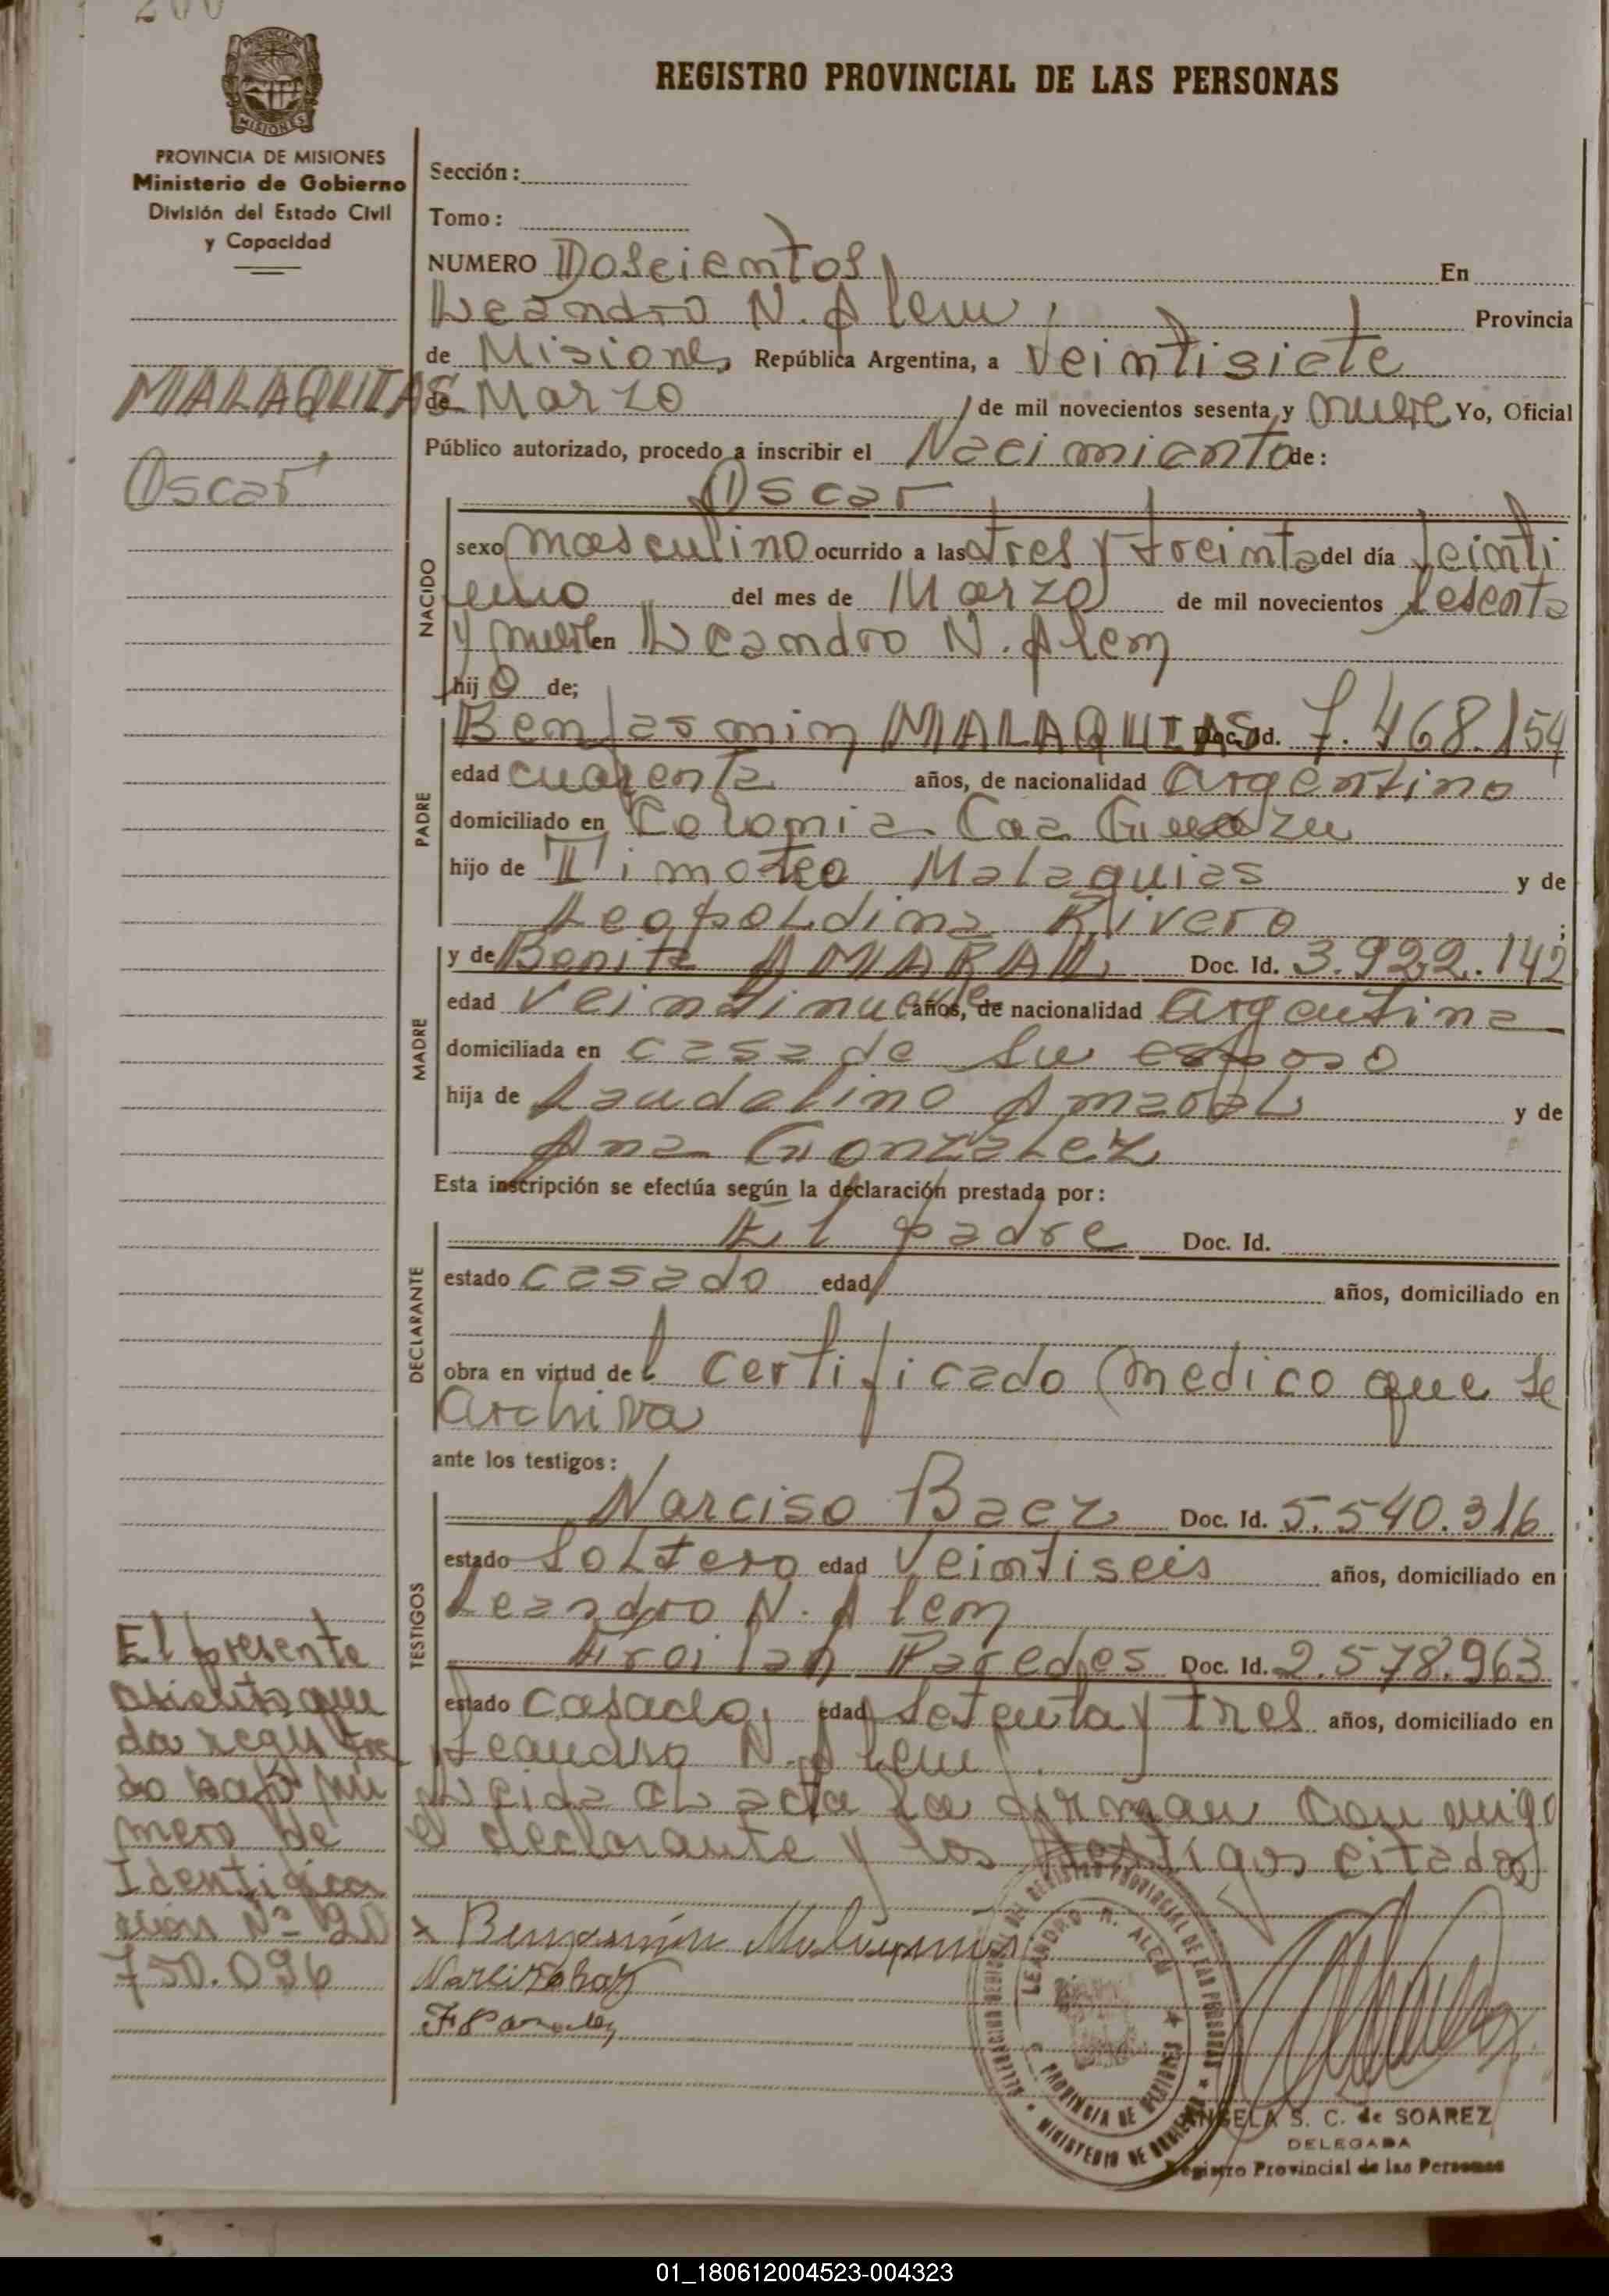 200
REGISTRO PROVINCIAL DE LAS PERSONAS
PROVINCIA DE MISIONES
MISIONES
PROVINCIA DE MISIONES
Ministerio de Gobierno
División del Estado Civil
y Capacidad
Sección:
Tomo:
NUMERO Doscientos En
Leandro N. Alem, Provincia
de Misiones República Argentina, a Veintisiete
de Marzo de mil novecientos sesenta y nueve Yo, Oficial
Público autorizado, procedo a inscribir el Nacimiento de:
MALAQUIAS
Oscar
NACIDO
Oscar
sexo masculino ocurrido a las tres y treinta del día Veinti
uno del mes de Marzo de mil novecientos sesenta
y nueve en Leandro N. Alem
hijo de;
PADRE
Benjasmin MALAQUIAS Doc. Id. 7.468.154
edad cuarenta años, de nacionalidad argentino
domiciliado en Colonia Caa Guazu
hijo de Timoteo Malaquias y de
Leopoldina Rivero ;
MADRE
y de Benita AMARAL Doc. Id. 3.922.142
edad Veintinueve años, de nacionalidad argentina
domiciliada en casa de su esposo
hija de Laudelino Amaral y de
Ana Gonzalez
Esta inscripción se efectúa según la declaración prestada por:
DECLARANTE
El padre Doc. Id.
estado casado edad años, domiciliado en
obra en virtud del Certificado medico que se
archiva
ante los testigos:
TESTIGOS
Narciso Baez Doc. Id. 5.540.316
estado Soltero edad Veintiseis años, domiciliado en
Leandro N. Alem
Froilan Paredes Doc. Id. 2.578.963
estado casado, edad Setenta y tres años, domiciliado en
Leandro N. Alem.
Leida el acta la firman con migo
el declarante y los testigos citados
El presente
asiento que
da registra
do bajo nú
mero de
Identifica
ción Nº 20
750.096
x Benjamin
F Paredes
REGISTRO PROVINCIAL DE LAS PERSONAS
LEANDRO N. ALEM
PROVINCIA DE MISIONES
MINISTERIO DE GOBIERNO
ANGELA S. C. de SOAREZ
DELEGADA
Registro Provincial de las Personas
01_180612004523-004323